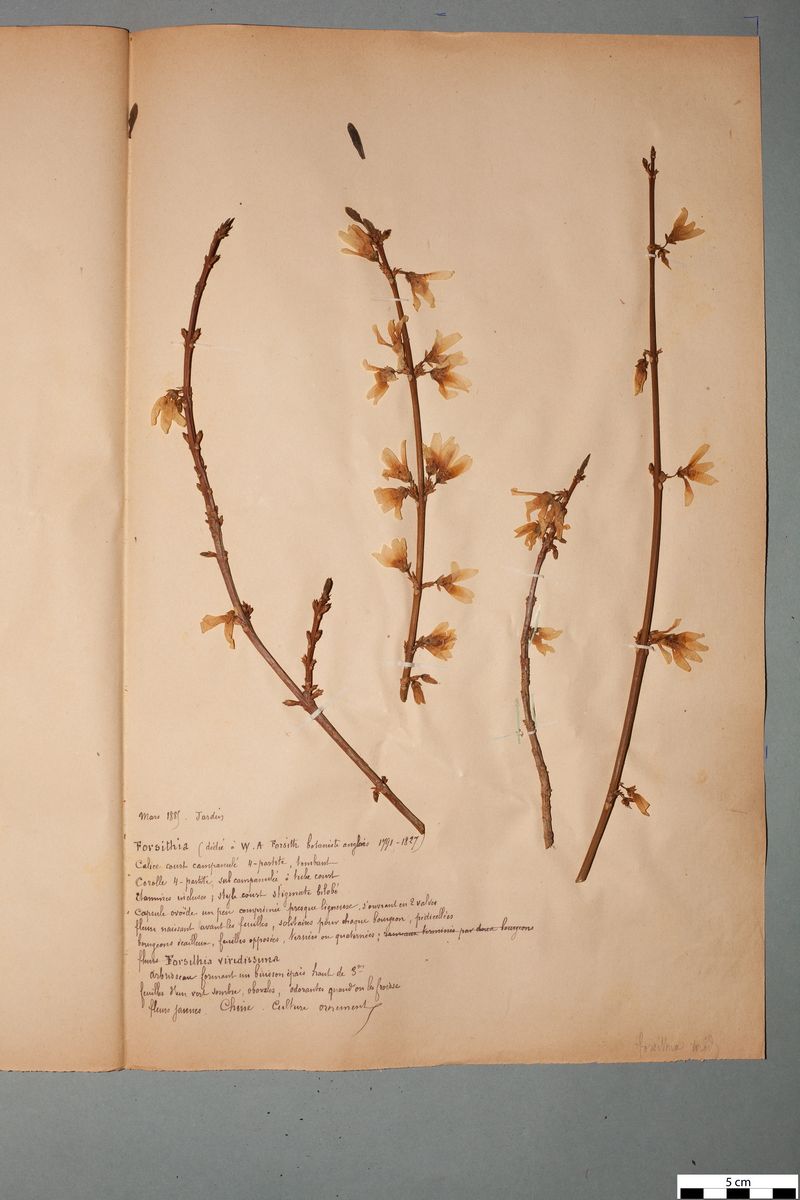 Mars 1885. Jardin
Forsithia (dédié à W. A Forsith botaniste anglais 1791-1827)
Calice court campanulé 4-partite, tombant
Corolle 4-partite, subcampanulée à tube court
étamines incluses; style court stigmate bilobé
Capsule ovoïde un peu comprimée presque ligneuse, s'ouvrant en 2 valves
fleurs naissant avant les feuilles, solitaires pour chaque bourgeon, pédicellées
bourgeons écailleux, feuilles opposées, ternées ou quaternées; rameaux terminés par deux bourgeons
fleurs Forsithia viridissima
Arbrisseau formant un buisson épais haut de 3m
feuilles d'un vert sombre, obovales, odorantes quand on les froisse
fleurs jaunes. Chine. Culture ornement
forsithia
5 cm